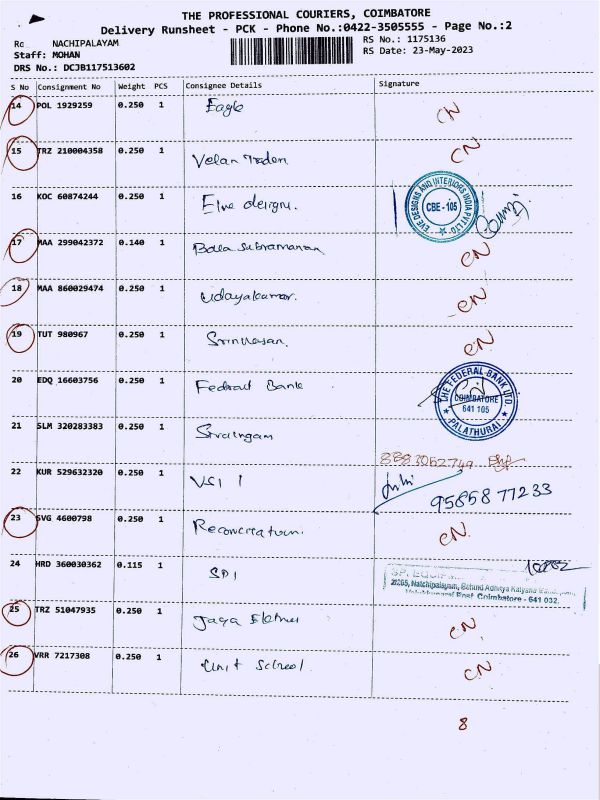 THE PROFESSIONAL COURIERS, COIMBATORE
Delivery Runsheet - PCK - Phone No.:0422-3505555 - Page No.:2
NACHIPALAYAM
RS No.: 1175136
Staff: MOHAN
RS Date: 23-May-2023
DRS No.: DCJB117513602
S No Consignment No Weight PCS Consignee Details Signature
14 POL 1929259 0.250 1 Eagle CN
15 TRZ 210004358 0.250 1 Velan Traders CN
16 KOC 60874244 0.250 1 designs
EVE DESIGNS AND INTERIORS INDIA PVT LTD
CBE - 105
17 MAA 299042372 0.140 1 Bala Subramanian CN
18 MAA 860029474 0.250 1 Udayakumar. CN
19 TUT 980967 0.250 1 Srinivasan. CN
20 EDQ 16603756 0.250 1 Federal Bank
THE FEDERAL BANK LTD.
COIMBATORE
641 105
PALATHURAI
21 SLM 320283383 0.250 1
8883052749
22 KUR 529632320 0.250 1 VSI 1
95858 77233
23 SVG 4600798 0.250 1 CN.
24 HRD 360030362 0.115 1 SPI
SP. EQUIP
Natchipalayam, Behind Adhitya Kalyana
Post Coimbatore - 641 032.
25 TRZ 51047935 0.250 1 Jaya CN
26 VRR 7217308 0.250 1 Unit School CN
8